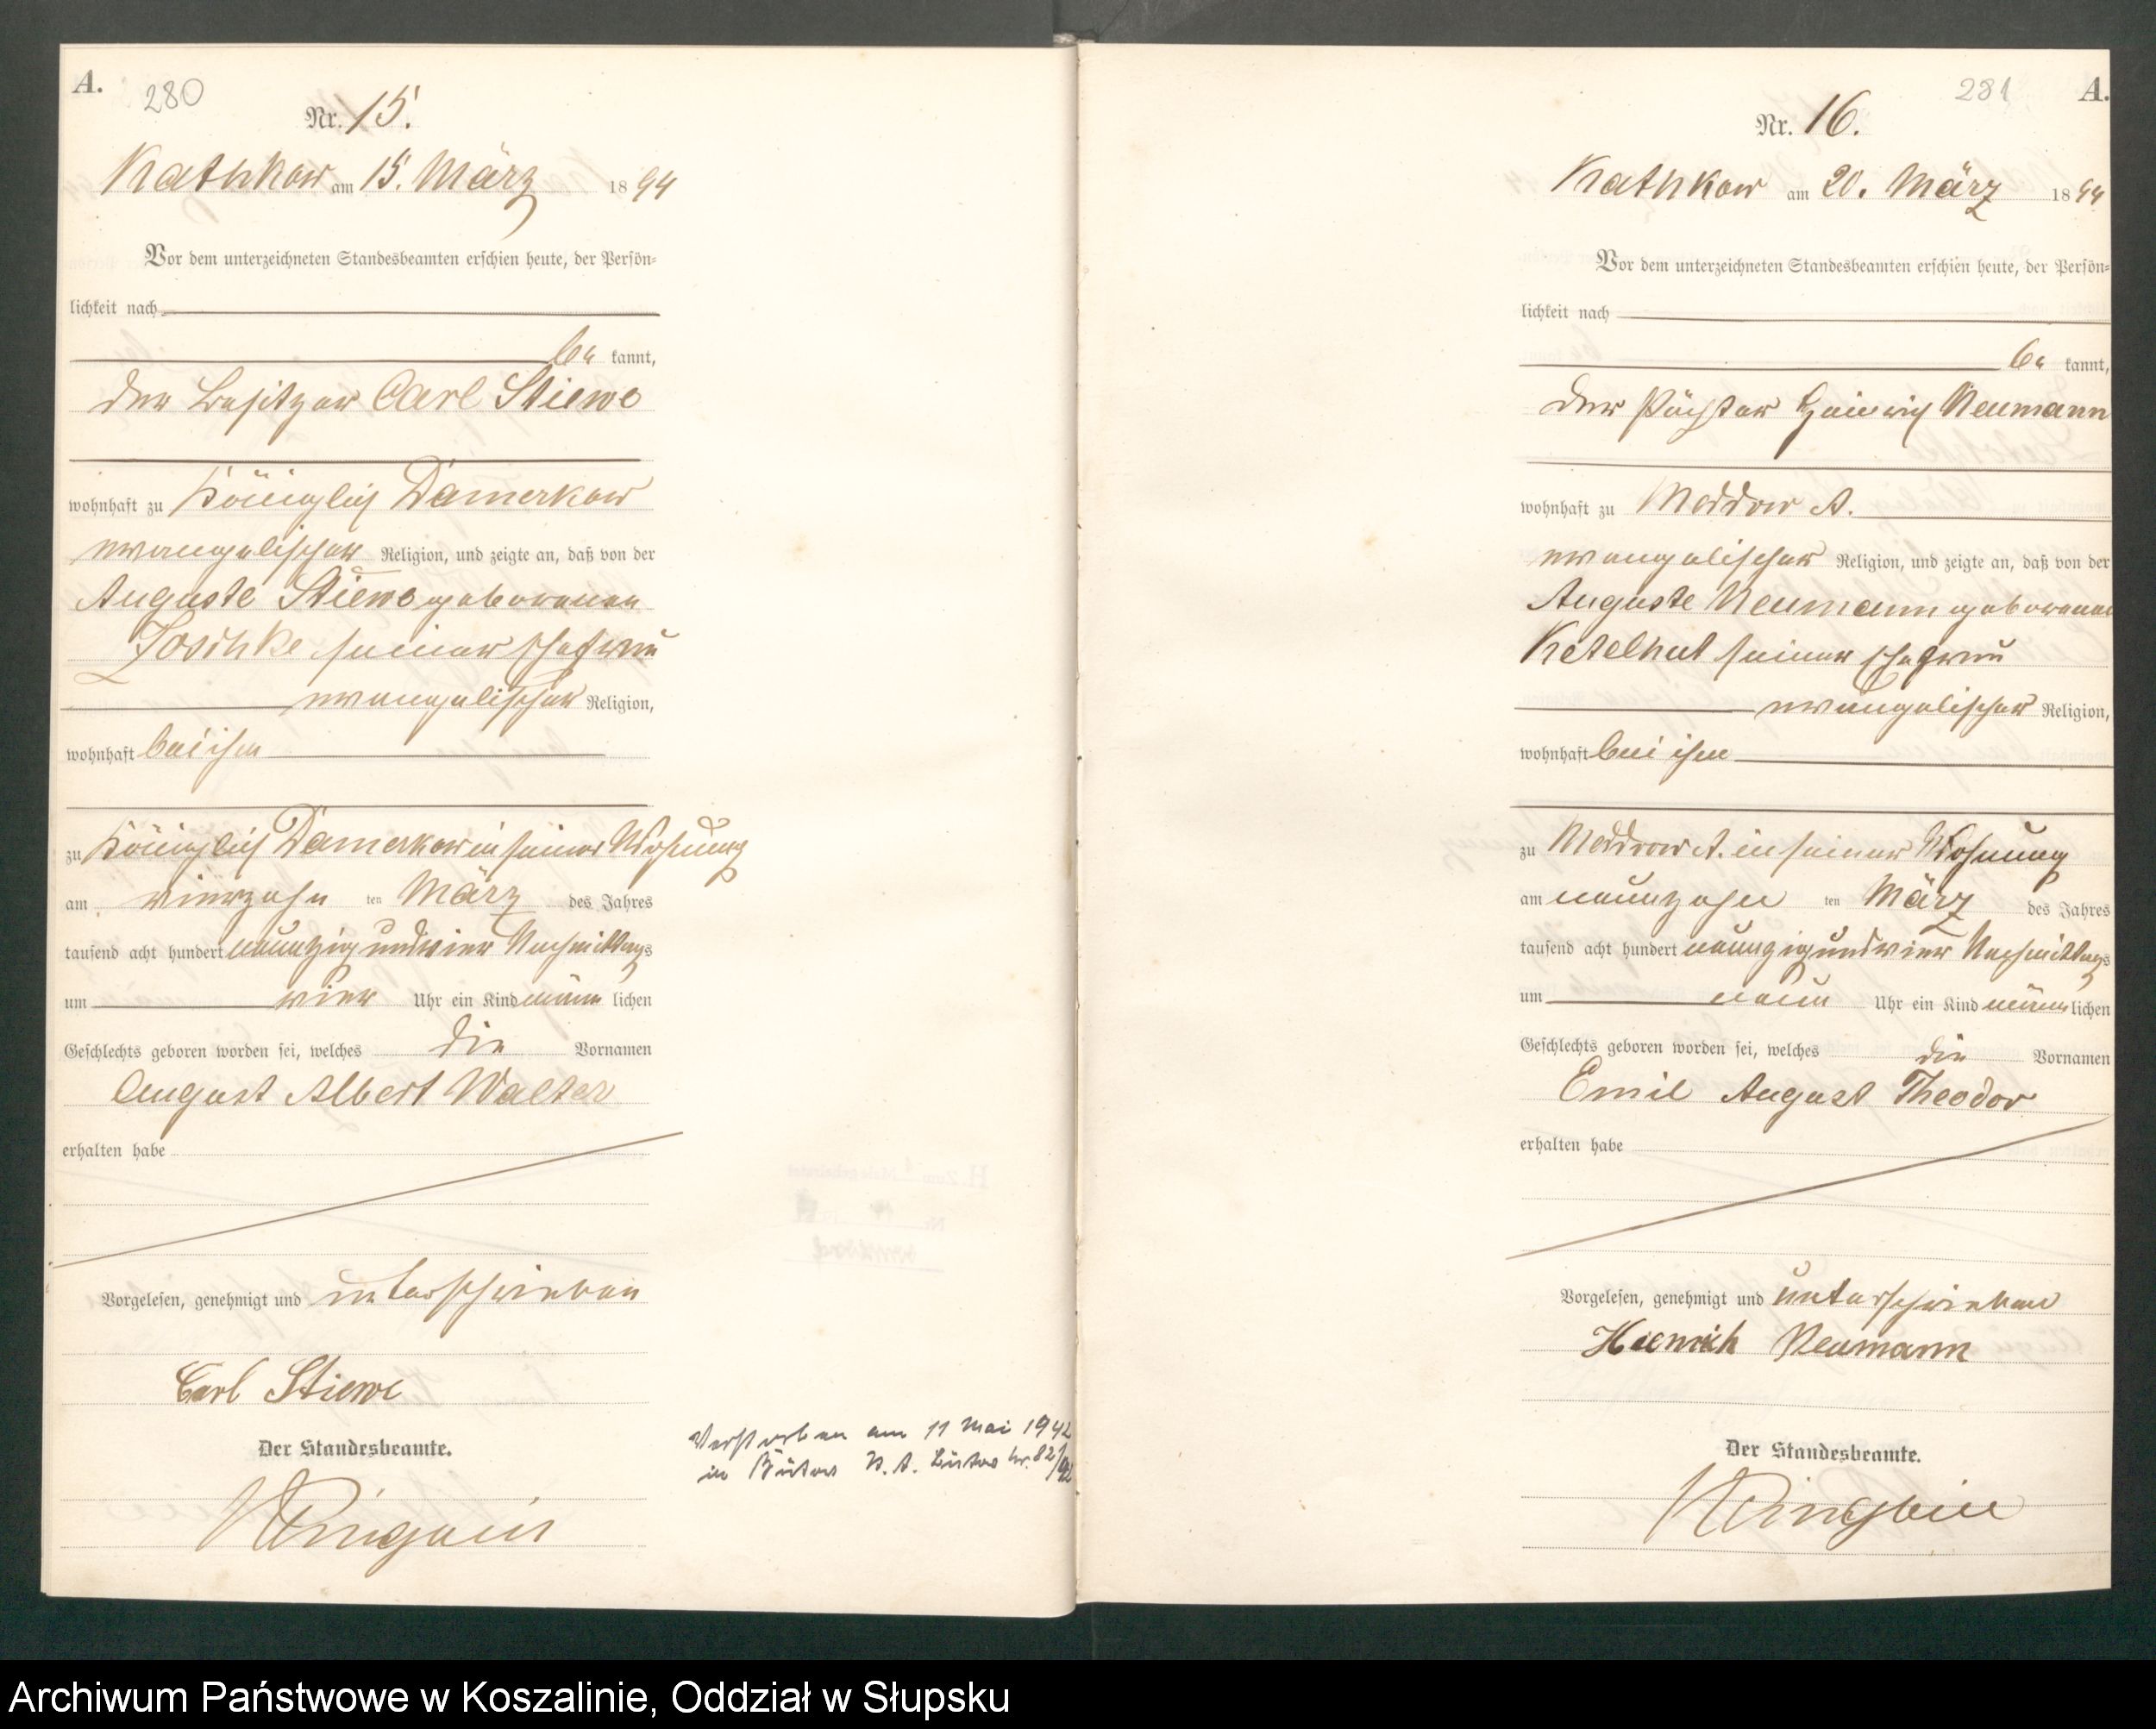 A.
280
Nr. 15.
Kathkow am 15. März 1894
Vor dem unterzeichneten Standesbeamten erschien heute, der Persön-
lichkeit nach
be kannt,
der Besitzer Carl Stiewe
wohnhaft zu Königlich Damerkow
evangelischer Religion, und zeigte an, daß von der
Auguste Stiewe geborenen
Joschke seiner Ehefrau
evangelischer Religion,
wohnhaft bei ihm
zu Königlich Damerkow in seiner Wohnung
am vierzehn ten März des Jahres
tausend acht hundert neunzig und vier Nachmittags
um vier Uhr ein Kind männ lichen
Geschlechts geboren worden sei, welches die Vornamen
August Albert Walter
erhalten habe
Vorgelesen, genehmigt und unterschrieben
Carl Stiewe
Der Standesbeamte.
Verstorben am 11 Mai 1942
in Bütow St. A. Bütow Nr. 82/42
281
A.
Nr. 16.
Kathkow am 20. März 1894
Vor dem unterzeichneten Standesbeamten erschien heute, der Persön-
lichkeit nach
be kannt,
der Pächter Heinrich Neumann
wohnhaft zu Moddrow A.
evangelischer Religion, und zeigte an, daß von der
Auguste Neumann geborenen
Ketelhut seiner Ehefrau
evangelischer Religion,
wohnhaft bei ihm
zu Moddrow A. in seiner Wohnung
am neunzehn ten März des Jahres
tausend acht hundert neunzig und vier Nachmittags
um neun Uhr ein Kind männ lichen
Geschlechts geboren worden sei, welches die Vornamen
Emil August Theodor
erhalten habe
Vorgelesen, genehmigt und unterschrieben
Heinrich Neumann
Der Standesbeamte.
Archiwum Państwowe w Koszalinie, Oddział w Słupsku